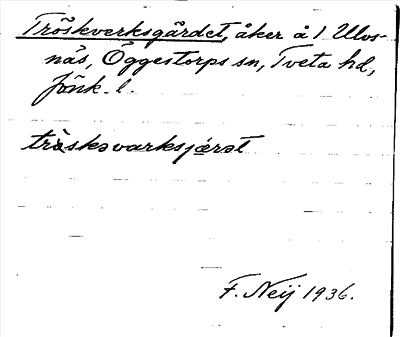 Tröskverksgärdet, åker å 1 Ulvs-
näs, Öggestorps sn, Tveta hd,
Jönk. l.
tròskəvarksjæ̀rət
F. Neij 1936.